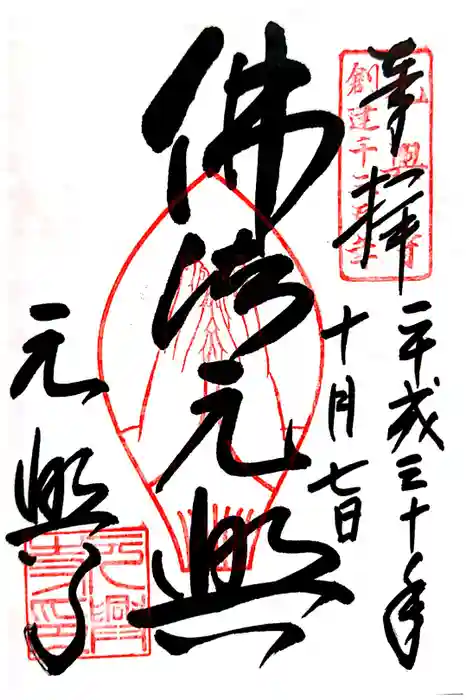 奉拝
平成三十年
十月七日
佛法元興
元興寺
元興寺
創建千三百年
元興
寺印